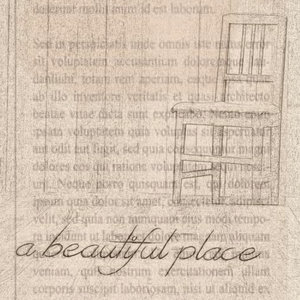 deserunt mollit id est laborum.
Sed in perspiciatis unde omnis iste natus error
sit voluptatem accusantium doloremque
tantium, totam rem aperiam, eaque
ab illo inventore veritatis et quasi architecto
beatae vitae dicta sunt explicabo. Nemo
ipsam voluptatem quia voluptas
aut odit aut fugit, sed quia consequuntur magni
dolores eos qui ratione voluptatem
Neque porro quisquam est, qui dolorem
ipsum quia dolor sit amet, consectetur,
velit, sed quia non numquam eius modi tempo-
ra incidunt ut labore et dolore magnam
a beautiful place
veniam, quis nostrum exercitationem ullam
corporis suscipit laboriosam, nisi ut aliquid ex